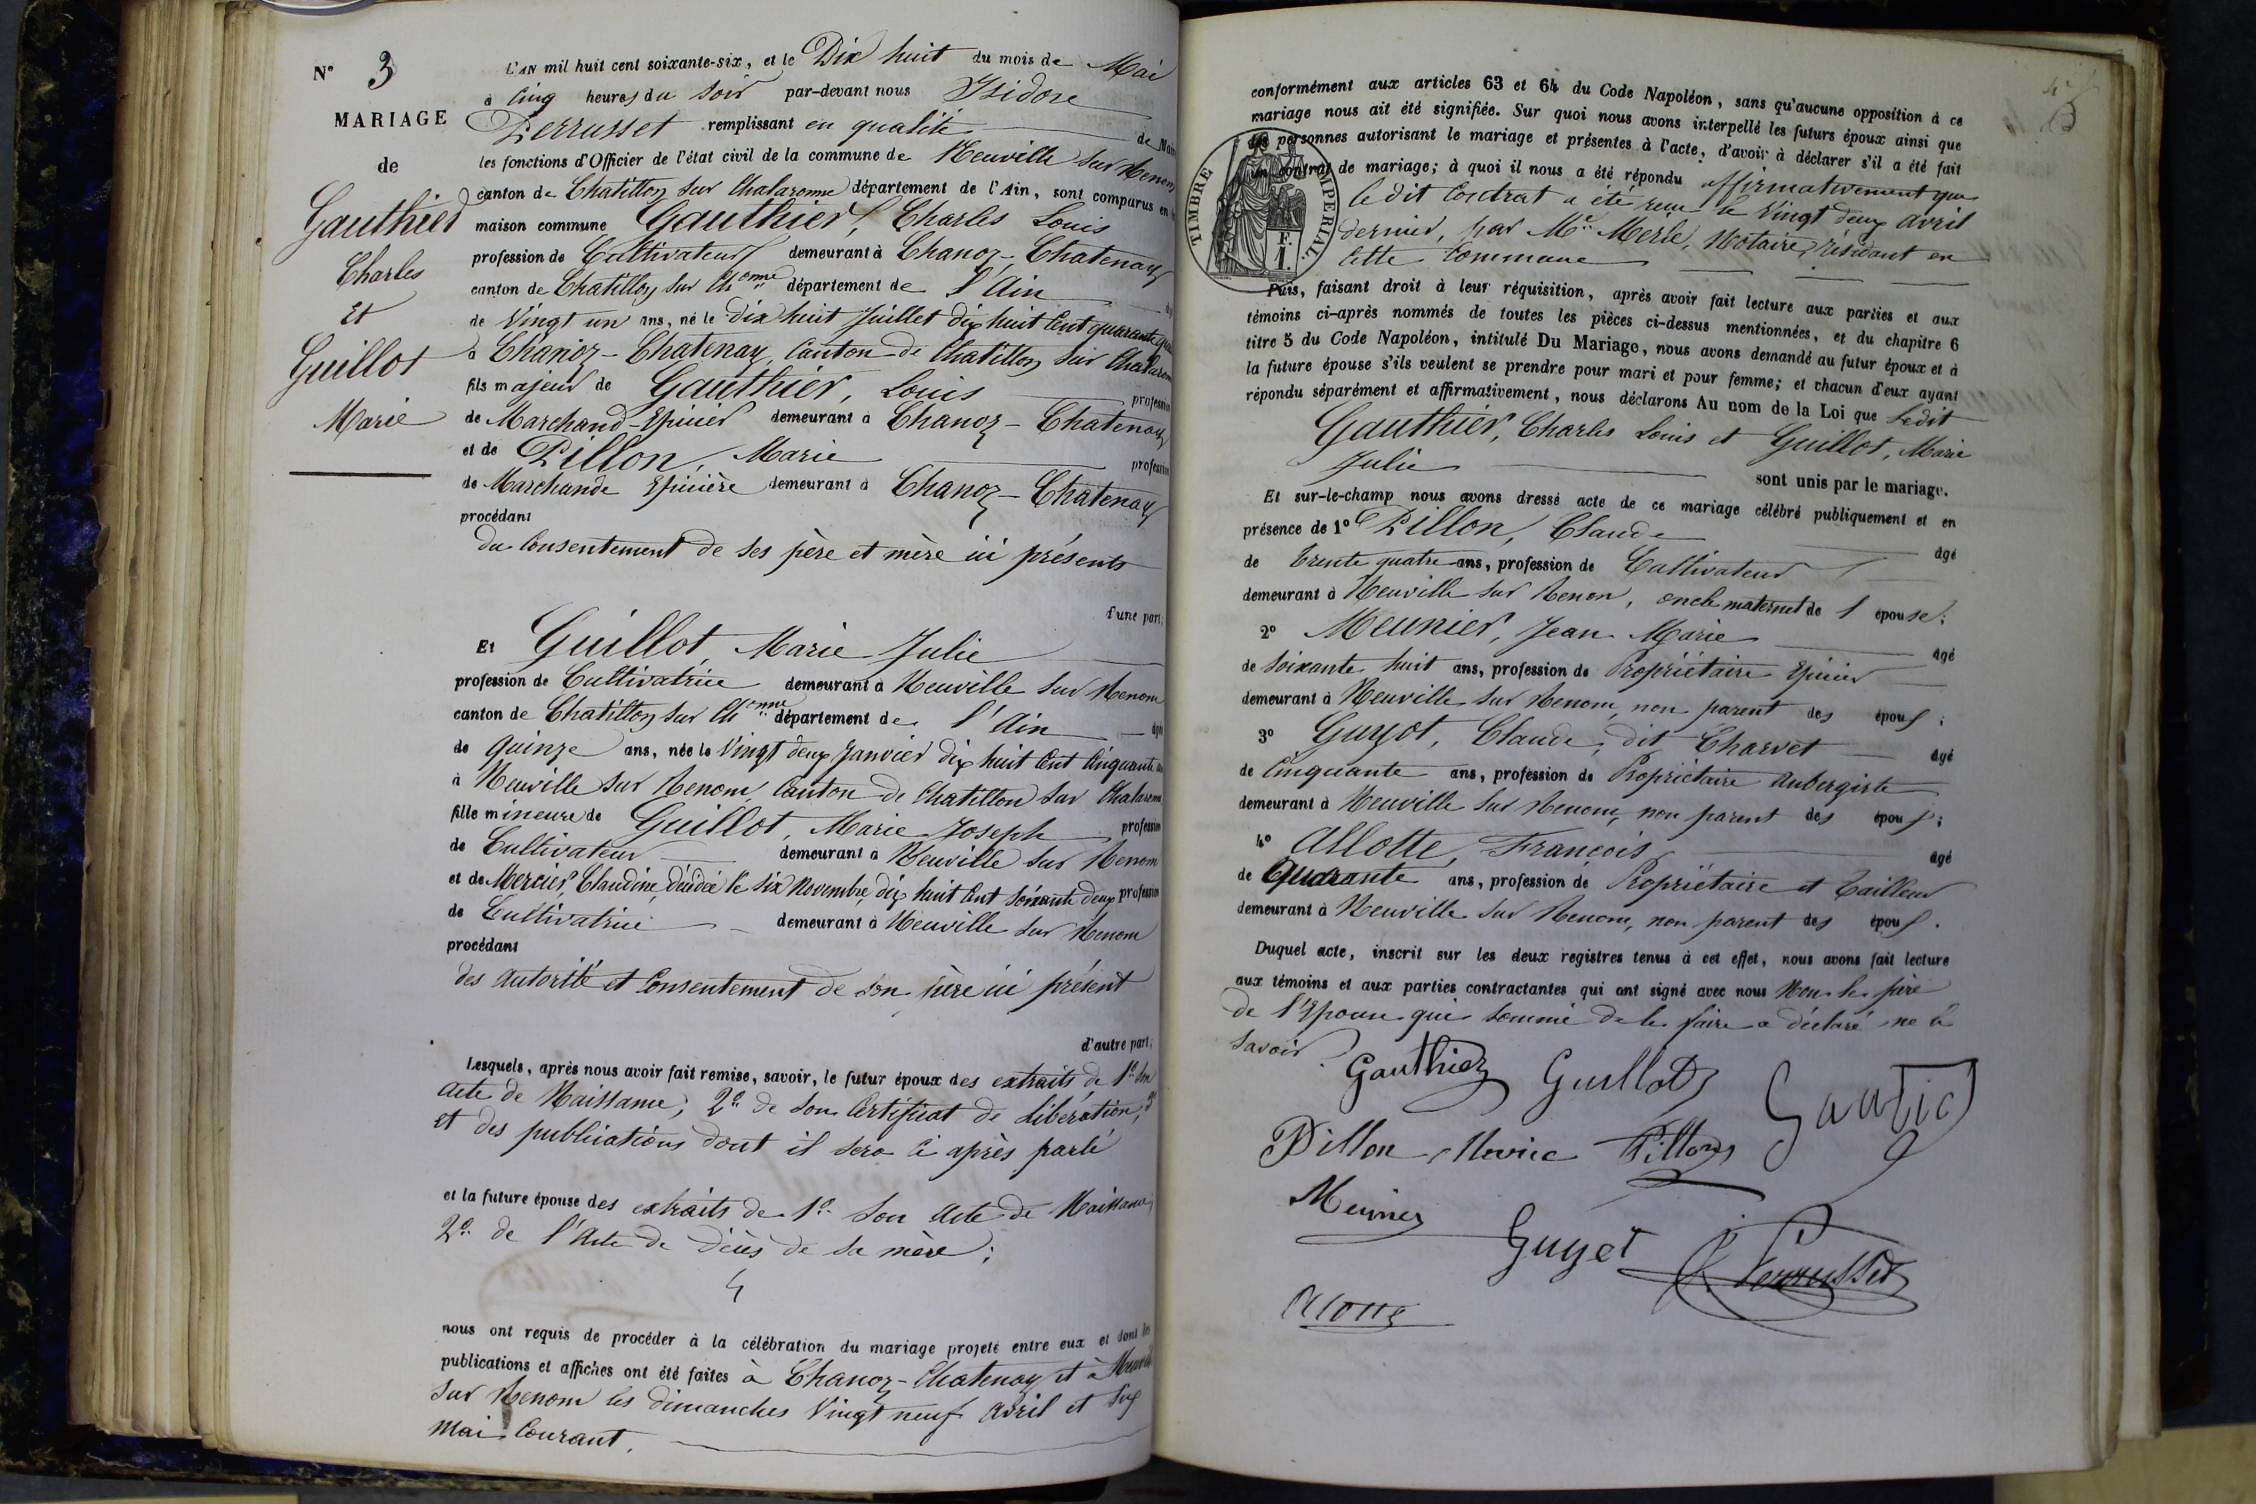 N° 3
MARIAGE
de
Gauthier
Charles
Et
Guillot
Marie
L'AN mil huit cent soixante-six, et le Dix huit du mois de Mai
à Cinq heures du Soir par-devant nous Isidore
Perrusset remplissant en qualité de
les fonctions d'Officier de l'état civil de la commune de Neuville sur Renom
canton de Chatillon sur Chalaronne département de l'Ain, sont comparus en
maison commune Gauthier, Charles Louis
profession de Cultivateur demeurant à Chanoz-Chatenay
canton de Chatillon sur Ch onne département de l'Ain
de Vingt un ans, né le dix huit Juillet dix huit Cent quarante
à Chanoz-Chatenay, Canton de Chatillon sur Chalaronne
fils majeur de Gauthier, Louis profession
de Marchand-Epicier demeurant à Chanoz-Chatenay
et de Pillon, Marie profession
de Marchande Epicière demeurant à Chanoz-Chatenay
procédant
du Consentement de ses père et mère ici présents
d'une part;
Et Guillot, Marie Julie
profession de Cultivatrice demeurant à Neuville sur Renom
canton de Chatillon sur Ch onne département de l'Ain âgée
de quinze ans, née le Vingt deux Janvier dix huit Cent Cinquante un
à Neuville sur Renom, Canton de Chatillon sur Chalaronne
fille mineure de Guillot, Marie Joseph profession
de Cultivateur demeurant à Neuville sur Renom
et de Mercier, Claudine, décédée le six Novembre, dix huit Cent Soixante deux profession
de Cultivatrice demeurant à Neuville sur Renom
procédant
des autorité et Consentement de son père ici présent
d'autre part;
Lesquels, après nous avoir fait remise, savoir, le futur époux des extraits de 1° Son
acte de Naissance; 2° de son Certificat de libération, 3°
et des publications dont il sera ci après parlé
et la future épouse des extraits de 1° Son acte de Naissance,
2° de l'Acte de décès de sa mère;
nous ont requis de procéder à la célébration du mariage projeté entre eux et dont les
publications et affiches ont été faites à Chanoz-Chatenay et à Neuville
sur Renom les dimanches Vingt neuf Avril et six
Mai Courant.
conformément aux articles 63 et 64 du Code Napoléon, sans qu'aucune opposition à ce
mariage nous ait été signifiée. Sur quoi nous avons interpellé les futurs époux ainsi que
les personnes autorisant le mariage et présentes à l'acte, d'avoir à déclarer s'il a été fait
un contrat de mariage; à quoi il nous a été répondu affirmativement que
le dit Contrat a été reçu le Vingt deux avril
dernier, par Me Merle, Notaire, résidant en
Cette Commune
TIMBRE IMPERIAL.
F.
1.
Puis, faisant droit à leur réquisition, après avoir fait lecture aux parties et aux
témoins ci-après nommés de toutes les pièces ci-dessus mentionnées, et du chapitre 6
titre 5 du Code Napoléon, intitulé Du Mariage, nous avons demandé au futur époux et à
la future épouse s'ils veulent se prendre pour mari et pour femme; et chacun d'eux ayant
répondu séparément et affirmativement, nous déclarons Au nom de la Loi que Ledit
Gauthier, Charles Louis et Guillot, Marie
Julie
sont unis par le mariage.
Et sur-le-champ nous avons dressé acte de ce mariage célébré publiquement et en
présence de 1° Pillon, Claude âgé
de Trente quatre ans, profession de Cultivateur
demeurant à Neuville sur Renom, oncle maternel de l'épouse;
2° Meunier, Jean Marie âgé
de Soixante huit ans, profession de Propriétaire Epicier
demeurant à Neuville sur Renom, non parent des époux;
3° Guyot, Claude, dit Charvet âgé
de Cinquante ans, profession de Propriétaire Aubergiste
demeurant à Neuville sur Renom, non parent des époux;
4° Allotte, François âgé
de Quarante ans, profession de Propriétaire et Tailleur
demeurant à Neuville sur Renom, non parent des époux.
Duquel acte, inscrit sur les deux registres tenus à cet effet, nous avons fait lecture
aux témoins et aux parties contractantes qui ont signé avec nous Non le père
de l'Epouse qui Sommé de le faire a déclaré ne le
Savoir.
Gauthier Guillot
Pillon Marie Pillon
Meunier
Guyot Perrusset